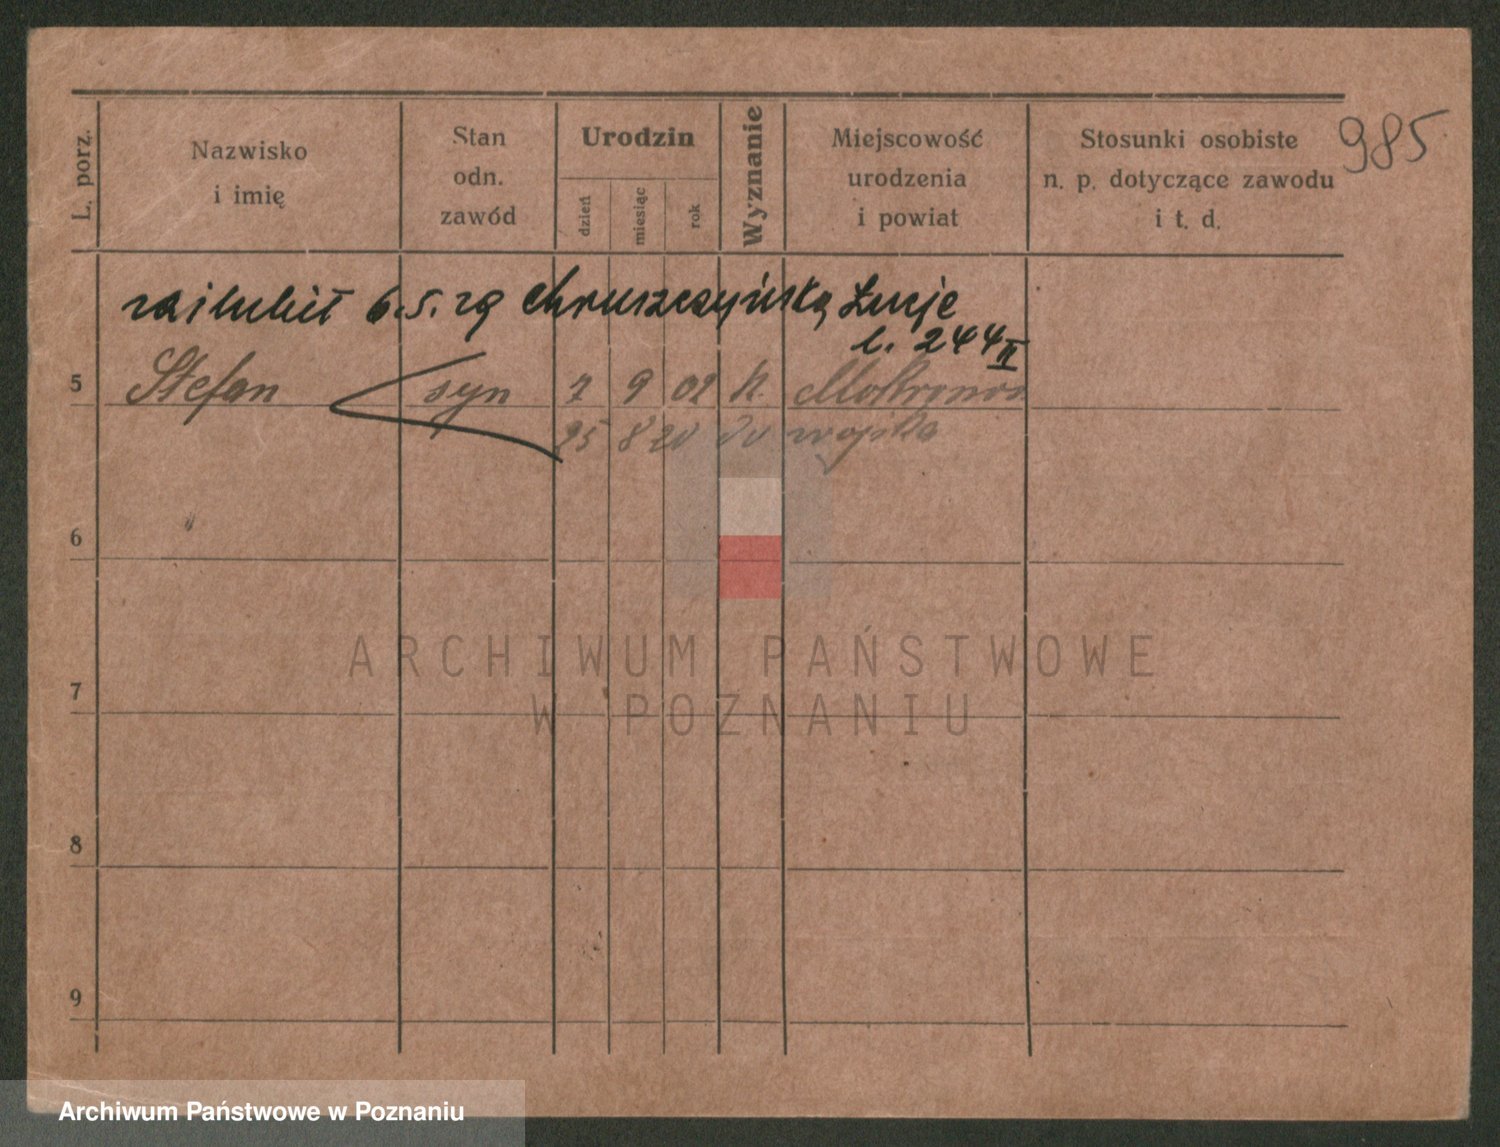 L. porz.
Nazwisko
i imię
Stan
odn.
zawód
Urodzin
dzień
miesiąc
rok
Wyznanie
Miejscowość
urodzenia
i powiat
Stosunki osobiste
n. p. dotyczące zawodu
i t. d.
985
zaślubił 6.5.29 Chruszczyńską Łucję
l. 244 II
5 Stefan syn 7 9 02 K. Mokronos
25 8 20 do wojska
6
7
8
9
ARCHIWUM PAŃSTWOWE
W POZNANIU
Archiwum Państwowe w Poznaniu